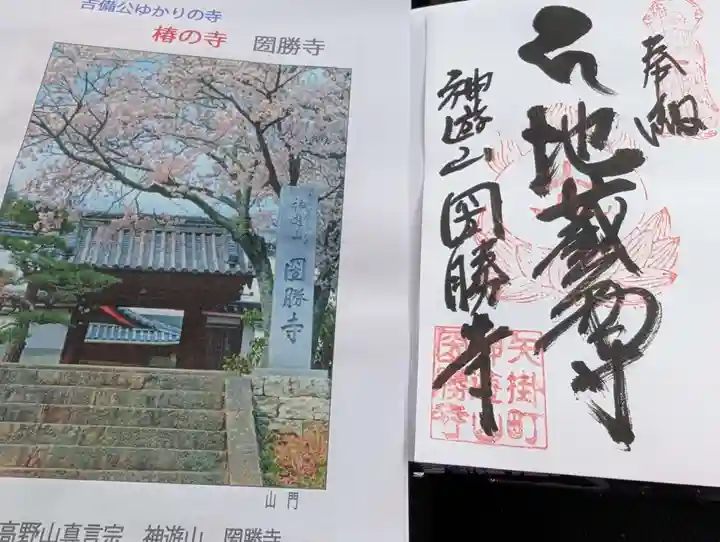 吉備公ゆかりの寺
椿の寺　圀勝寺
神遊山
圀勝寺
山門
高野山真言宗　神遊山　圀勝寺
奉納
地蔵尊
神遊山圀勝寺
矢掛町
神遊山
圀勝寺